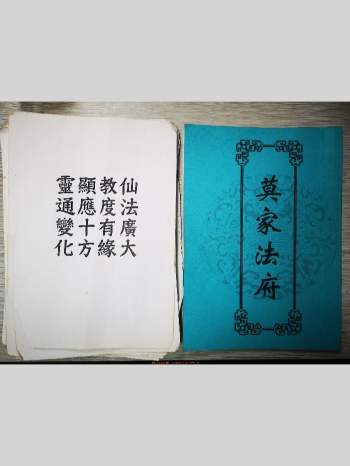 仙法廣大
教度有緣
顯應十方
靈通變化
莫家法府